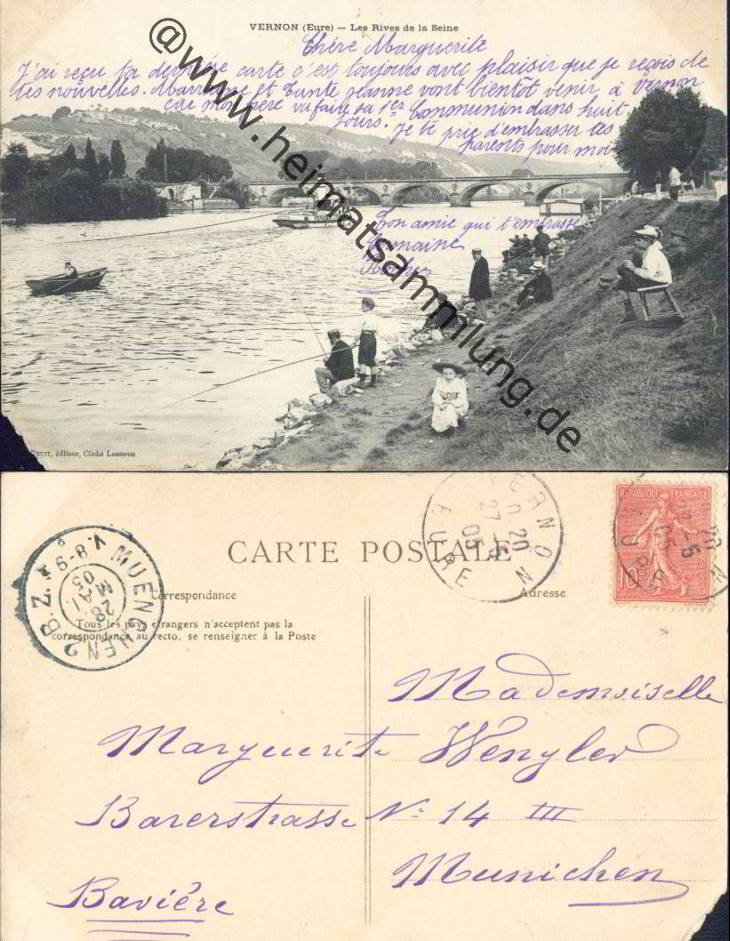 VERNON (Eure) — Les Rives de la Seine
Chère Marguerite
J'ai reçu ta dernière carte c'est toujours avec plaisir que je reçois de
tes nouvelles. Marraine et Tante Jeanne vont bientôt venir à Vernon
car mon frère va faire sa 1re Communion dans huit
jours. Je te prie d'embrasser tes
parents pour moi
Ton amie qui t'embrasse
Germaine
www.heimatsammlung.de
PETIT, éditeur, Cliché Lameron
CARTE POSTALE
Correspondance
Adresse
Tous les pays étrangers n'acceptent pas la
correspondance au recto, se renseigner à la Poste
MUENCHEN 2 B.Z.
V. 8-9
28
MAI
05
VERNON
20
27-5
05
EURE
REPUBLIQUE FRANÇAISE
10c
27-5
05
EURE
Mademoiselle
Marguerite Wengler
Barerstrasse No 14 III
Munichen
Bavière